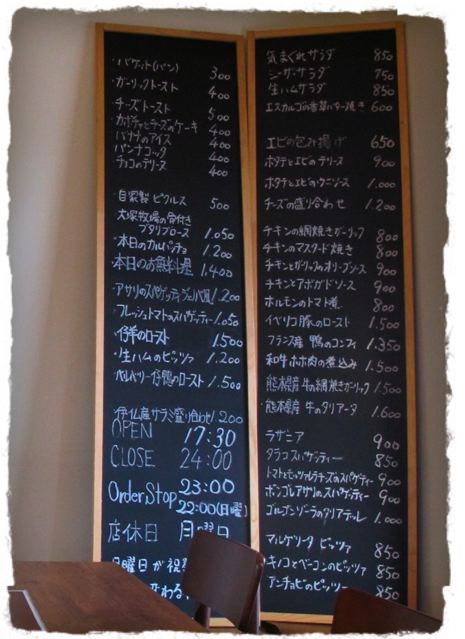 ・バケット(パン) 300
・ガーリックトースト 400
チーズトースト 500
・カボチャとチーズのケーキ 400
バナナのアイス 400
パンナコッタ 400
チョコのテリーヌ 400
自家製 ピクルス 500
大塚牧場の骨付き
ブタリブロース 1.050
・本日のカルパッチョ 1.200
・本日のお魚料理 1.400
・アサリのスパゲッティジェノバ風 1.200
フレッシュトマトのスパゲッティー 1.050
・仔羊のロースト 1.500
・生ハムのピッツァ 1.200
仔鴨のロースト 1.500
伊仏産サラミ盛り合わせ 1.200
OPEN 17:30
CLOSE 24:00
Order Stop 23:00
22:00(日曜)
店休日 月曜日
月曜日が祝
変わる
気まぐれサラダ 850
シーザーサラダ 750
生ハムサラダ 850
エスカルゴの香草バター焼き 600
エビの包み揚げ 650
ホタテとエビのテリーヌ 900
ホタテとエビのウニソース 1.000
チーズの盛り合わせ 1.200
チキンの網焼きガーリック 800
チキンのマスタード焼き 800
チキンとガーリックのオリーブソース 900
チキンとアボカドソース 900
ホルモンのトマト煮 800
イベリコ豚のロースト 1.500
フランス産 鴨のコンフィ 1.350
和牛ホホ肉の煮込み 1.500
熊本県産 牛の網焼きガーリック 1.500
・熊本県産 牛のタリアータ 1.600
ラザニア 900
タラコスパゲッティー 850
トマトとモッツァレラチーズのスパゲティー 900
ボンゴレアサリのスパゲッティー 900
ゴルゴンゾーラのタリアテッレ 1.000
マルゲリータ ピッツァ 850
キノコとベーコンのピッツァ 850
アンチョビのピッツァ 850